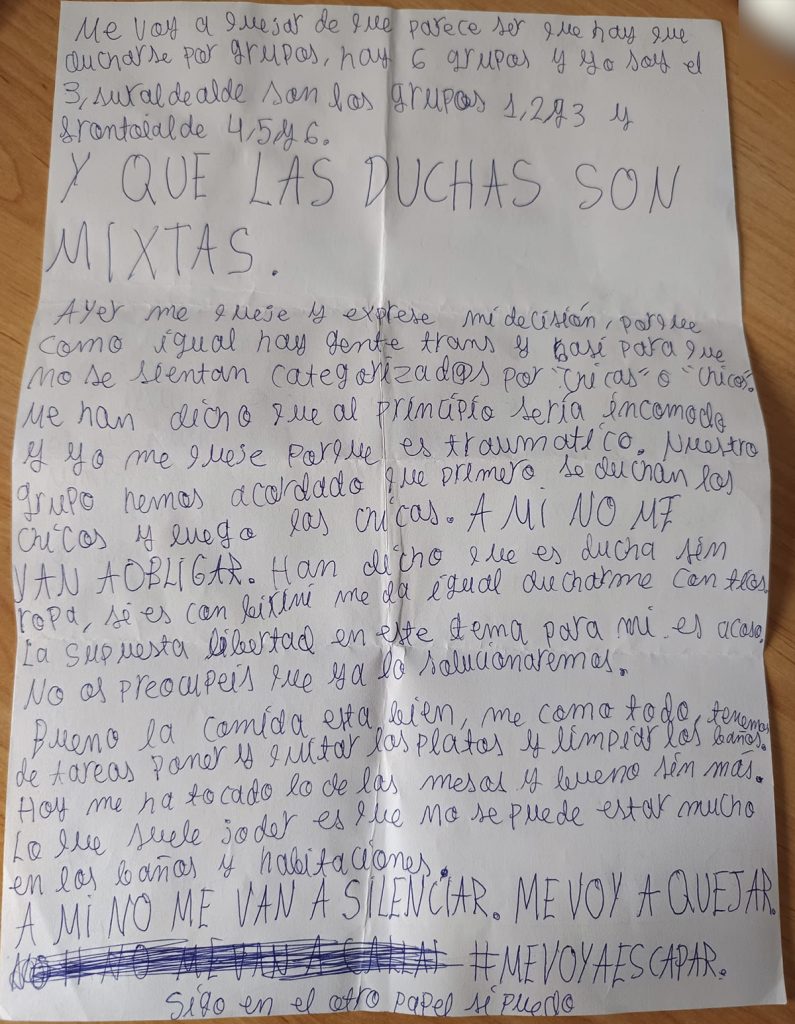 Me voy a quejar de que parece ser que hay que
ducharse por grupos, hay 6 grupos y yo soy el
3, sutaldealde son los grupos 1,2 y 3 y
frontoialde 4,5 y 6.
Y QUE LAS DUCHAS SON
MIXTAS.
Ayer me queje y exprese mi decisión, porque
como igual hay gente trans y basi para que
no se sientan categorizad@s por "chicas" o "chicos".
Me han dicho que al principio seria incomodo
y yo me queje porque es traumatico. Nuestro
grupo hemos acordado que primero se duchan los
chicos y luego las chicas. A MI NO ME
VAN A OBLIGAR. Han dicho que es ducha sin
ropa, si es con bikini me da igual ducharme con tios.
La supuesta libertad en este tema para mi es acoso.
No os preocupeis que ya lo solucionaremos.
Bueno la comida esta bien, me como todo, tenemos
de tareas poner y quitar los platos y limpiar los baños.
Hoy me ha tocado lo de las mesas y bueno sin mas.
Lo que suele joder es que no se puede estar mucho
en los baños y habitaciones.
A MI NO ME VAN A SILENCIAR. ME VOY A QUEJAR.
#MEVOYAESCAPAR.
Sigo en el otro papel si puedo